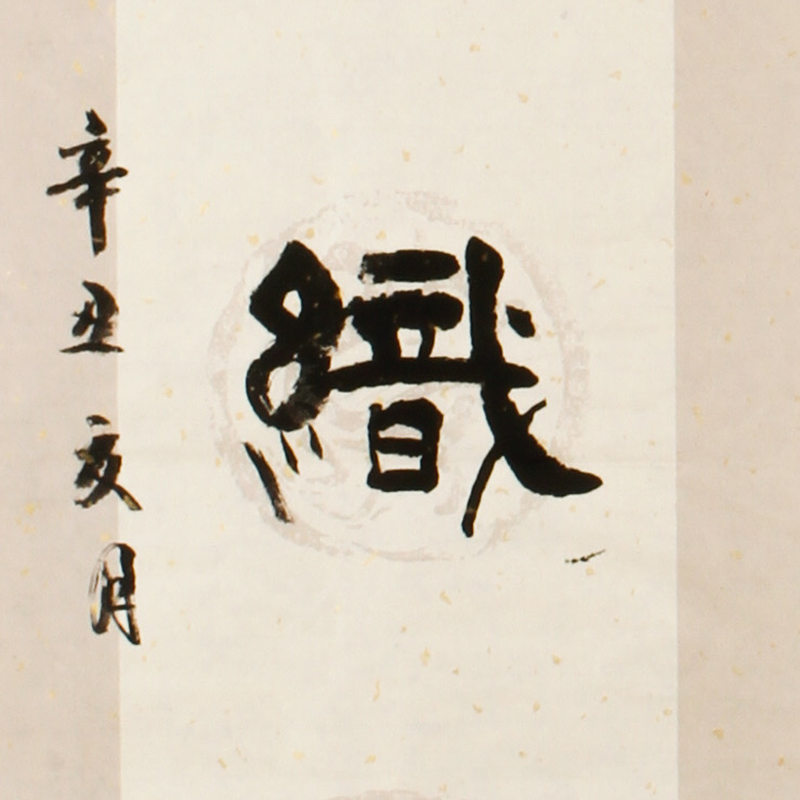 織
辛丑亥月